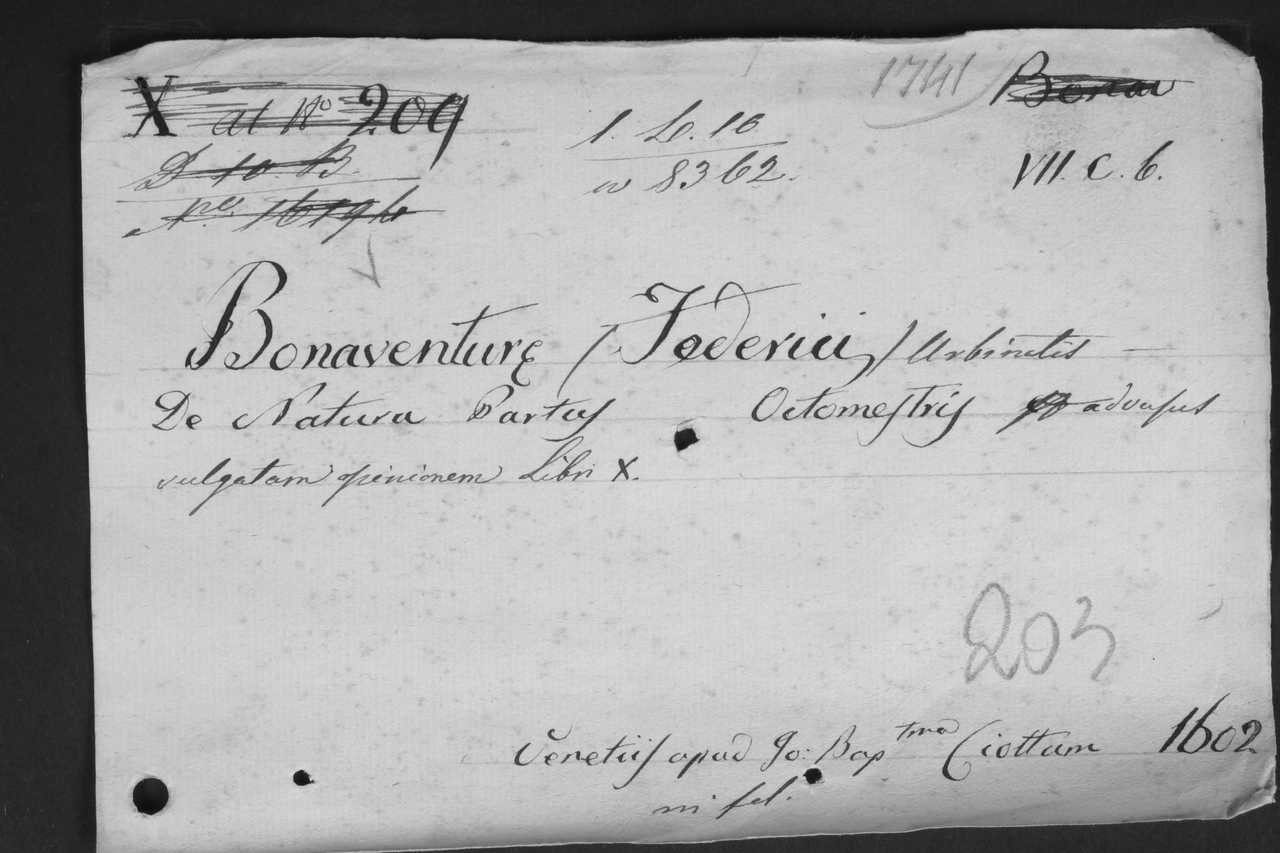 X at No 209
1741
Bonav
D 10. B.
1. Le. 10
VII. C. 6.
n 8362.
Bonaventurę (Federici) Urbinatis
De Natura Partus Octomestris adversus
vulgatam opinionem Libri X.
203
Venetiis apud Jo: Bap tma Ciottum 1602
in fol.